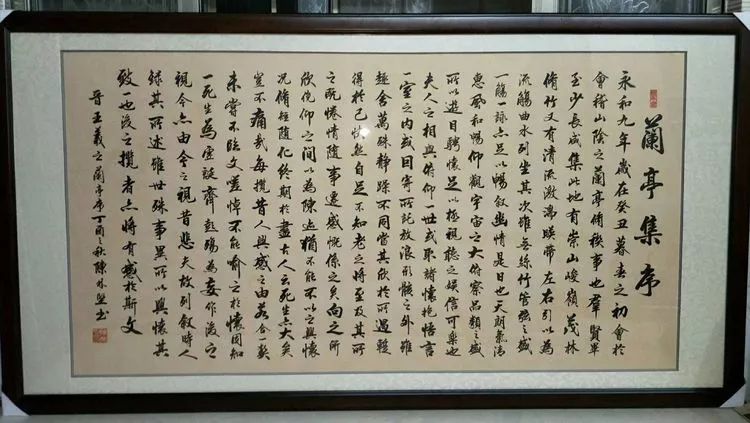 蘭亭集序
永和九年歲在癸丑暮春之初會於
會稽山陰之蘭亭脩稧事也羣賢畢
至少長咸集此地有崇山峻嶺茂林
脩竹又有清流激湍暎帶左右引以為
流觴曲水列坐其次雖無絲竹管弦之盛
一觴一詠亦足以暢叙幽情是日也天朗氣清
惠風和暢仰觀宇宙之大俯察品類之盛
所以遊目騁懷足以極視聽之娛信可樂也
夫人之相與俯仰一世或取諸懷抱悟言
一室之內或因寄所託放浪形骸之外雖
趣舍萬殊靜躁不同當其欣於所遇蹔
得於己怏然自足不知老之將至及其所
之既惓情隨事遷感慨係之矣向之所
欣俛仰之間以為陳迹猶不能不以之興懷
況脩短隨化終期於盡古人云死生亦大矣
豈不痛哉每攬昔人興感之由若合一契
未嘗不臨文嗟悼不能喻之於懷固知
一死生為虛誕齊彭殤為妄作後之
視今亦由今之視昔悲夫故列叙時人
錄其所述雖世殊事異所以興懷其
致也後之攬者亦將有感於斯文
晉王羲之蘭亭序丁酉之秋陳林書